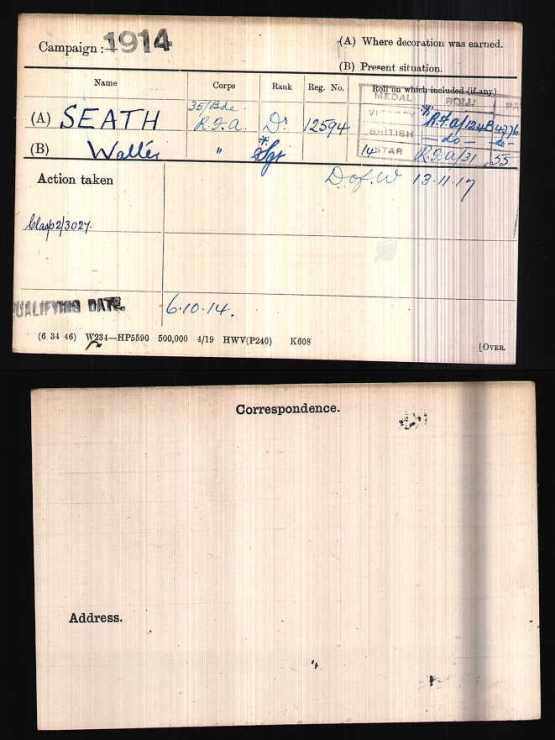 Campaign :- 1914
(A) Where decoration was earned.
(B) Present situation.
Name Corps Rank Reg. No. Roll on which included (if any)
MEDAL ROLL
35/Bde.
(A) SEATH R.F.A. Dr 12594 VICTORY * R.F.A/124B
BRITISH -do- -do-
(B) Walter " * Sgt 14 STAR R.F.A/31 55
Action taken D of W 13.11.17
Clasp 2/3027.
QUALIFYING DATE. 6.10.14.
(6 34 46) W234—HP5590 500,000 4/19 HWV(P240) K608
[OVER.
Correspondence.
Address.